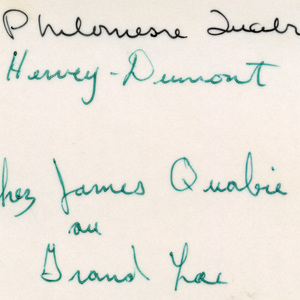 Philomesne
Hervey-Dumont
chez James Quabie
au
Grand Lac